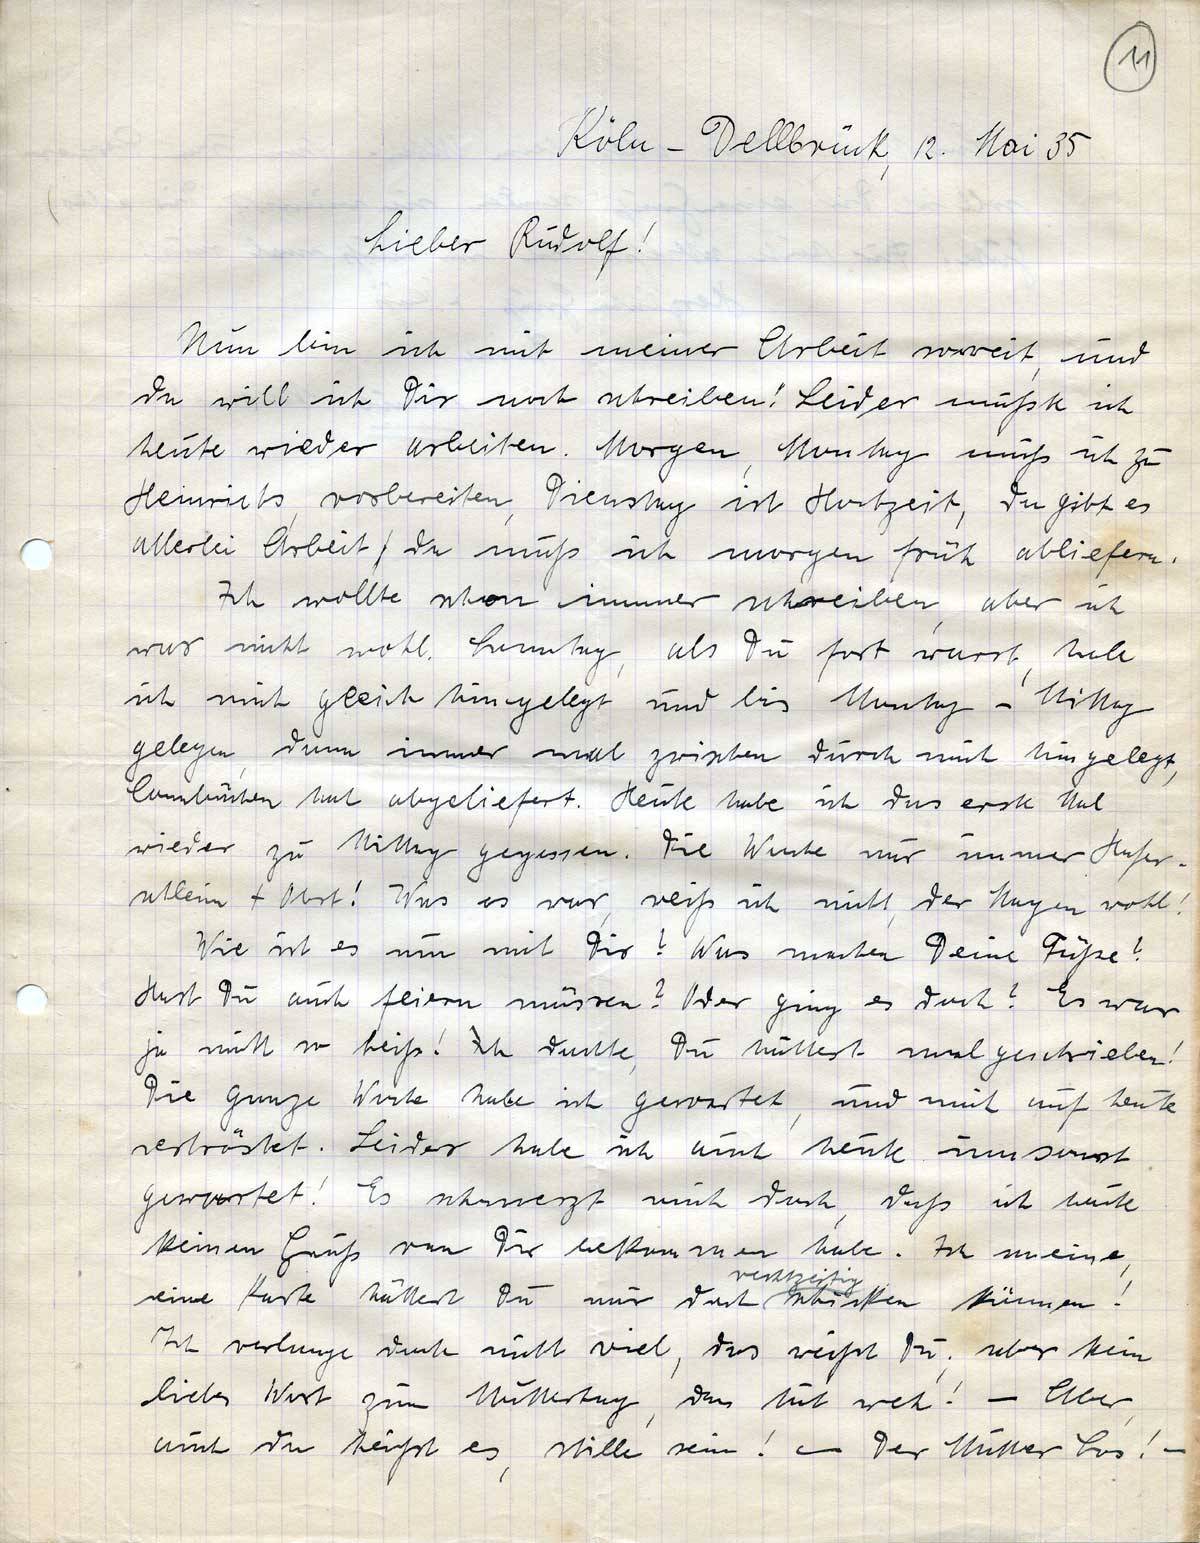 11
Köln – Dellbrück, 12. Mai 35
Lieber Rudolf!
Nun bin ich mit meiner Arbeit soweit, und
da will ich Dir noch schreiben! Leider mußte ich
heute wieder arbeiten. Morgen, Montag muß ich zu
Heinrichs, vorbereiten, Dienstag ist Hochzeit, da gibt es
allerlei Arbeit, da muß ich morgen früh abliefern.
Ich wollte schon immer schreiben, aber ich
war nicht wohl. Sonntag, als Du fort warst, habe
ich mich gleich hingelegt und bis Montag – Mittag
gelegen, dann immer mal zwischen durch mich hingelegt,
hat abgeliefert. Heute habe ich das erste Mal
wieder zu Mittag gegessen. Die Woche nur immer Hafer-
schleim + Obst! Was es war, weiß ich nicht, der Magen wohl!
Wie ist es nun mit Dir? Was machen Deine Füße?
Hast Du auch feiern müssen? Oder ging es doch? Es war
ja nicht so heiß! Ich dachte, Du hättest mal geschrieben!
Die ganze Woche habe ich gewartet, und mich auf heute
vertröstet. Leider habe ich auch heute umsonst
gewartet! Es schmerzt mich doch, daß ich heute
keinen Gruß von Dir bekommen habe. Ich meine,
eine Karte hättest Du mir doch rechtzeitig schicken können!
Ich verlange doch nicht viel, das weißt Du, aber kein
liebes Wort zum Muttertag, das tut weh! – Aber,
auch da heißt es, stille sein! – Der Mutter Los! –